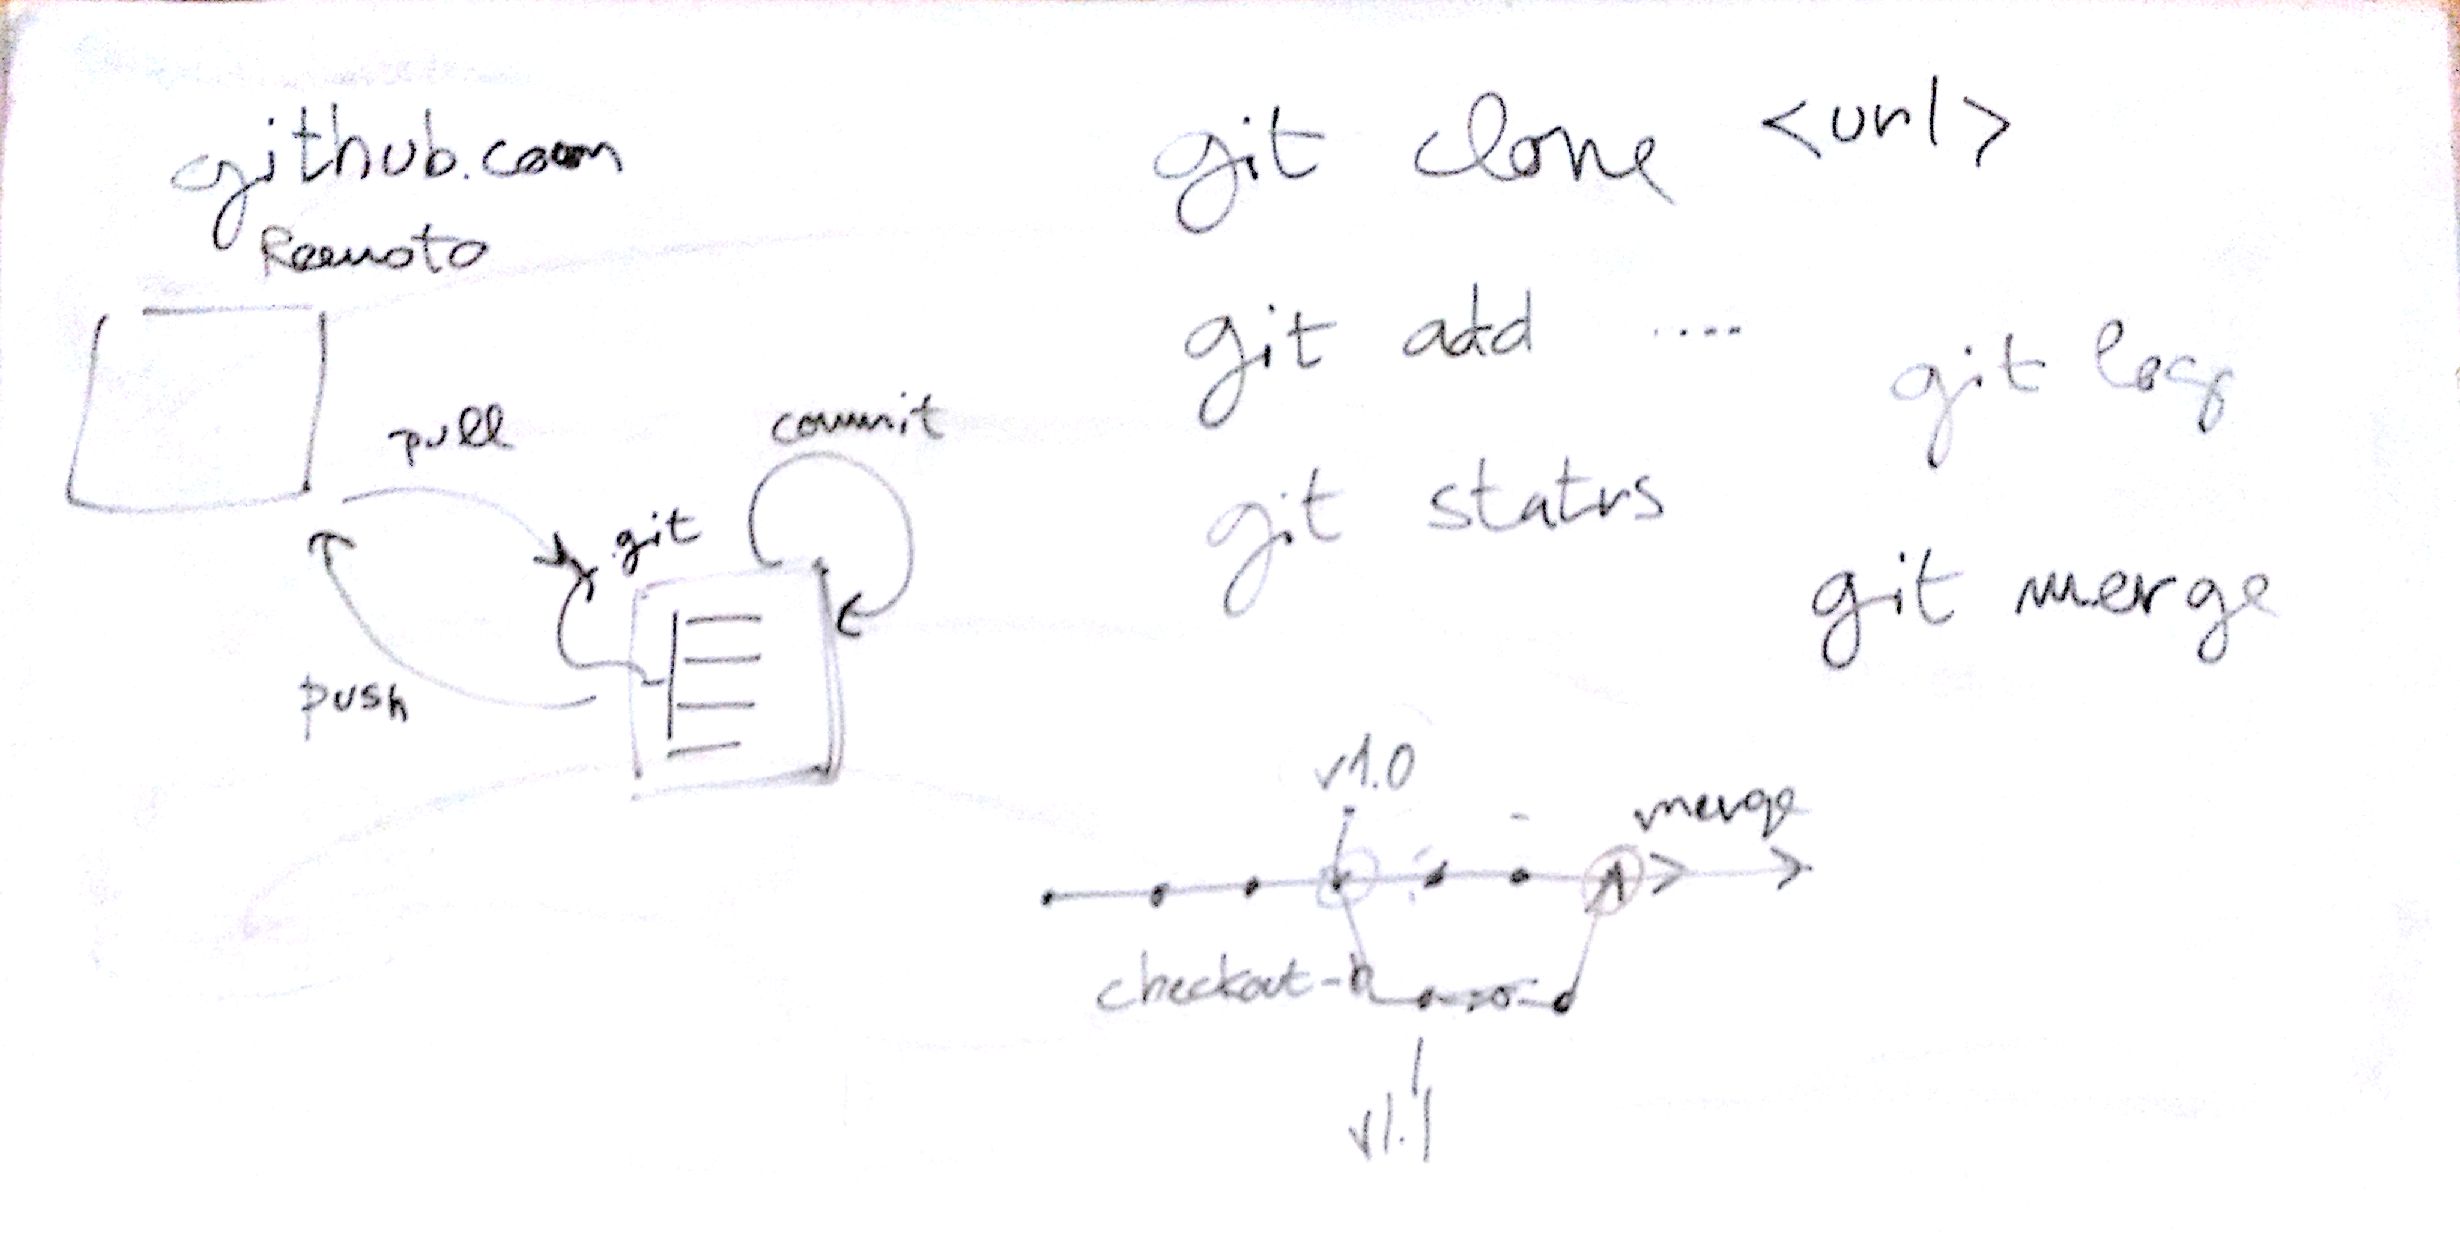 github.com
Remoto
pull
commit
.git
push
git clone <url>
git add ....
git log
git status
git merge
v1.0
merge
checkout -b
v1.1